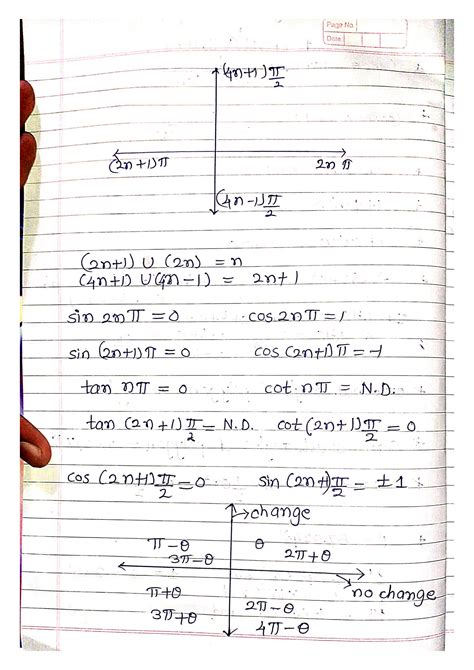 Page No
Date
(4n+1)π/2
(2n+1)π 2nπ
(4n-1)π/2
(2n+1) ∪ (2n) = n
(4n+1) ∪ (4n-1) = 2n+1
sin 2nπ = 0 cos 2nπ = 1
sin (2n+1)π = 0 cos (2n+1)π = -1
tan nπ = 0 cot nπ = N.D.
tan (2n+1)π/2 = N.D. cot (2n+1)π/2 = 0
cos (2n+1)π/2 = 0 sin (2n+1)π/2 = ±1
change
π-θ θ
3π-θ 2π+θ
no change
π+θ 2π-θ
3π+θ 4π-θ